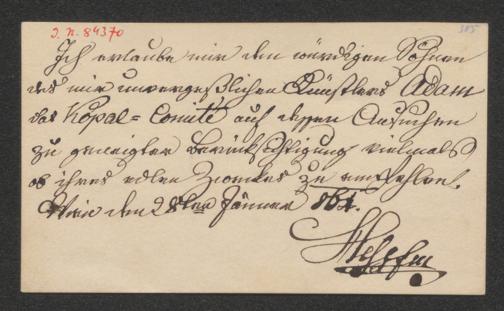 J. N. 84370
305
Ich erlaube mir den würdigen Söhnen
des mir unvergeßlichen Künstlers Adam
das Kopal=Comité auf dessen Ansuchen
zu geneigter Berücksichtigung vielmals
ob ihres edlen Zweckes zu empfehlen.
Wien den 28ten Jänner 861.